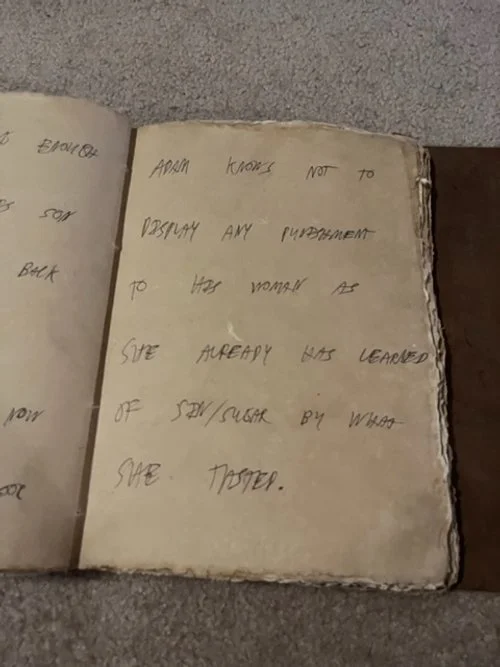 ENOUGH
SON
BACK
NOW
ADAM KNOWS NOT TO
DISPLAY ANY PUNISHMENT
TO HIS WOMAN AS
SHE ALREADY HAS LEARNED
OF SIN/SUGAR BY WHAT
SHE TASTED.